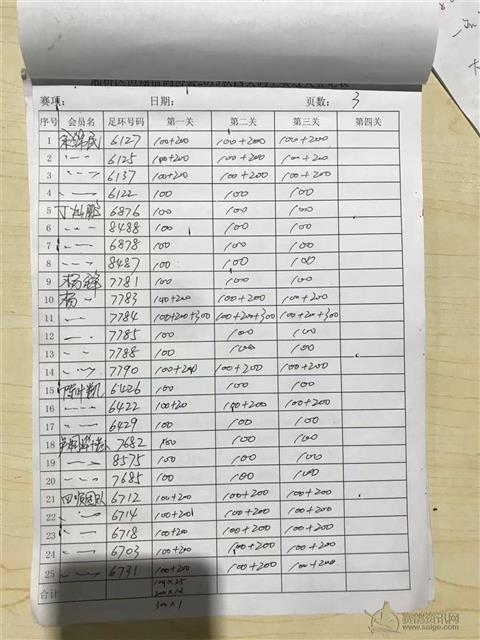 赛项： 日期： 页数： 3
序号 会员名 足环号码 第一关 第二关 第三关 第四关
1 6127 100+200 100+200 100+200
2 〃 6125 100+200 100+200 100+200
3 〃 6137 100+200 100+200 100+200
4 〃 6122 100 100 100
5 丁灿鹏 6876 100 100 100
6 〃 8488 100 100 100
7 〃 6878 100 100 100
8 〃 8487 100 100 100
9 杨锋 7781 100 100 100
10 杨〃 7783 100+200 100+200 100+200
11 〃 7784 100+200+300 100+200+300 100+200+300
12 〃 7785 100 100 100
13 〃 7788 100 100 100
14 〃 7790 100+200 100+200 100+200
15 陈叶凯 6426 100 100 100
16 〃 6422 100+200 100+200 100+200
17 〃 6429 100 100 100
18 7682 100 100 100
19 〃 8575 100 100 100
20 〃 7685 100 100 100
21 四顺团队 6712 100+200 100+200 100+200
22 〃 6714 100+200 100+200 100+200
23 〃 6718 100+200 100+200 100+200
24 〃 6703 100+200 100+200 100+200
25 〃 6731 100+200 100+200 100+200
合计 100×25
200×12
300×1
赛鸽资讯网
www.saige.com